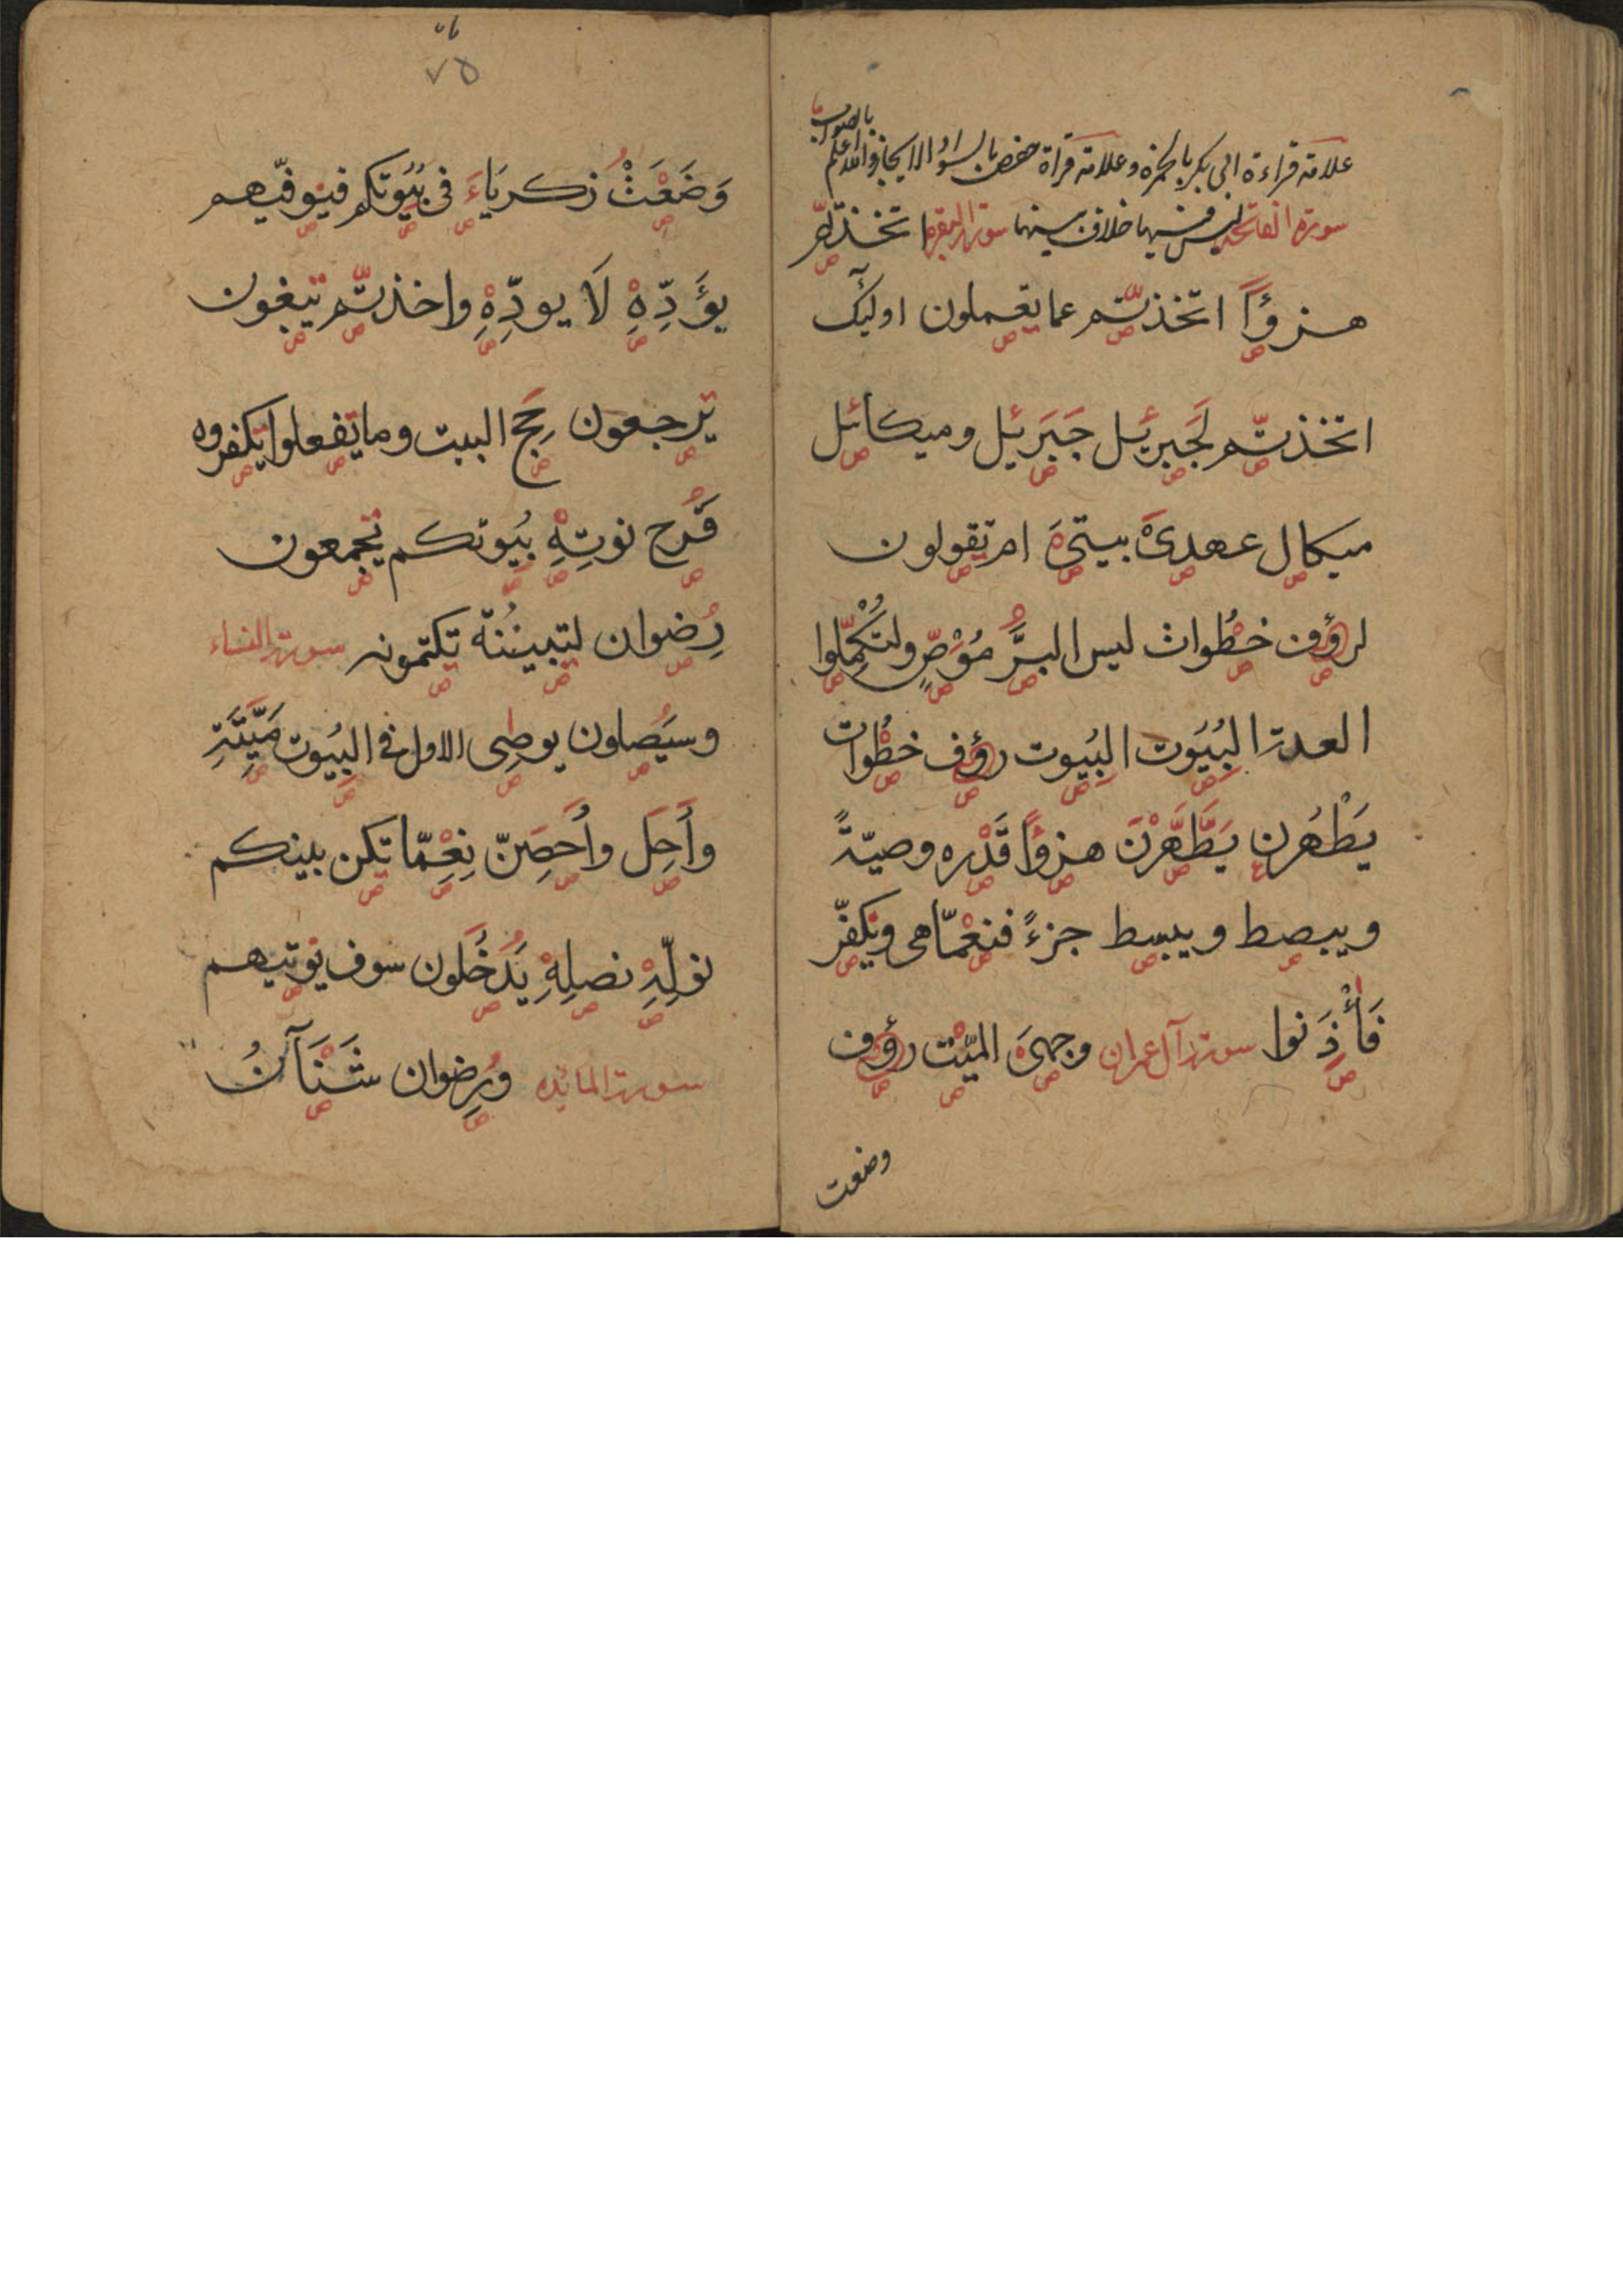 علامة قراءة ابى بكر بالحمرة وعلامة قراة حفص بالسواد للايجاز والله اعلم
بالصواب
سورة الفاتحة ليس فيها خلاف بينهما سورة البقرة اتخذتم
هزؤًا اتخذتم عما يعملون اولئك
اتخذتم لجبرئل جبرئيل وميكائل
ميكال عهدى بيتى ام تقولون
لرؤف خطوات ليس البر موص ولتكملوا
العدة البُيُوت البيوت رؤف خطوات
يَطْهُرن يَطَّهَّرْنَ هزؤًا قدره وصيةً
ويبصط ويبسط جزءً فنعمّا هى ونكفّر
فَأْذَنوا سورة آل عمران وجهى الميّت رؤف
وضعت
٧٥
وَضَعَتْ زكرياء فى بيوتكم فيوفّيهم
يؤَدِّهِ لَا يودِّهِ واخذتم تبغون
ترجعون حج البيت وما تفعلوا تكفروه
قَرح نوتِهِ بيُوتكم تجمعون
رِضوان لتبيننه تكتمونه سورة النساء
وسيَصلون يوصى الاول فى البيُوت مبَيِّنَةٍ
وأحِل وأحصِنّ نِعِمّا تكن بينكم
نولّهِ نصلِهِ يدخلون سوف يؤتيهم
سورة المائده ورِضوان شَنَآنُ